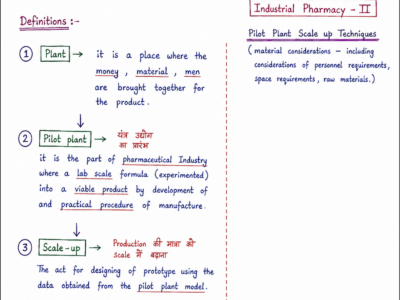 Definitions :-
① Plant → it is a place where the
money , material , men
are brought together for
the product .
② Pilot plant → यंत्र उद्योग
का प्रारंभ
it is the part of pharmaceutical Industry
where a lab scale formula (experimented)
into a viable product by development of
and practical procedure of manufacture.
③ Scale-up → Production की मात्रा को
scale में बढ़ाना
The act for designing of prototype using the
data obtained from the pilot plant model.
Industrial Pharmacy - II
Pilot Plant Scale up Techniques
( material considerations - including
considerations of personnel requirements,
space requirements, raw materials.)